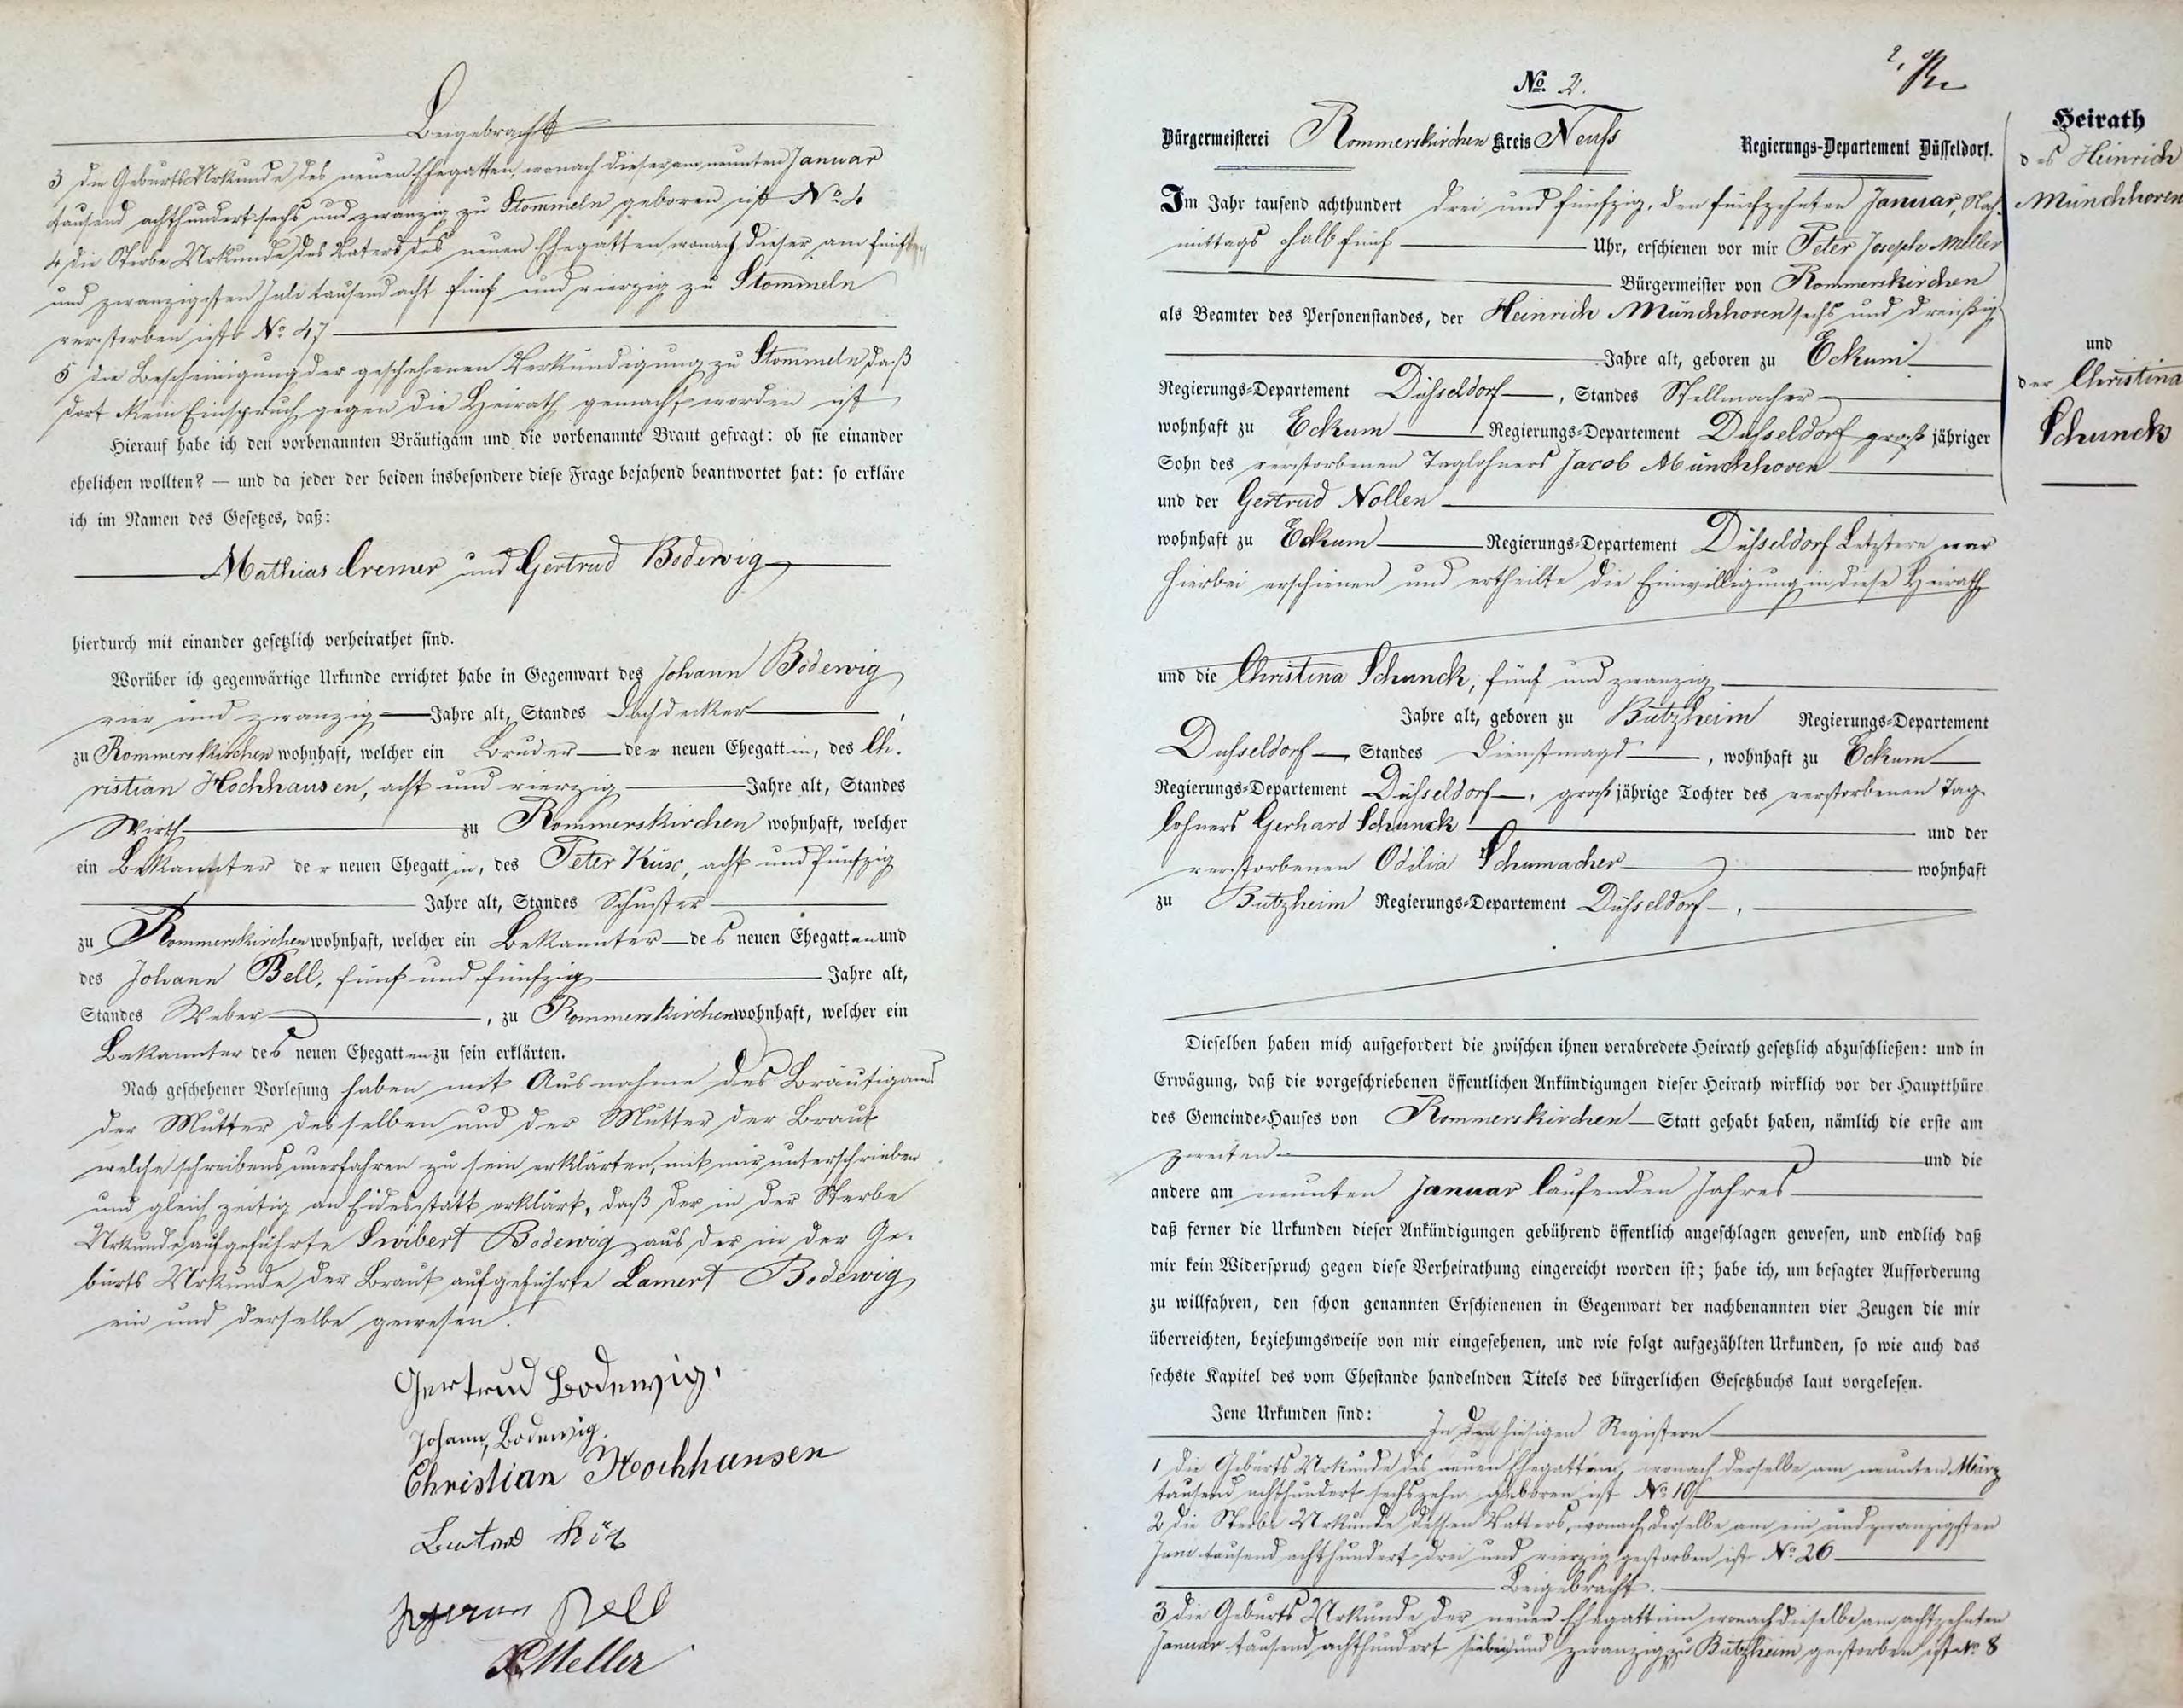 Beigebracht
3 die Geburts Urkunde des neuen Ehegatten, wonach dieser am neunten Januar
tausend achthundert sechs und zwanzig zu Stommeln geboren ist No 4
4 die Sterbe Urkunde des Vaters des neuen Ehegatten wonach dieser am fünften
und zwanzigsten Juli tausend acht fünf und vierzig zu Stommeln
verstorben ist No 47
5 die Bescheinigung der geschehenen Verkündigung zu Stommeln daß
dort kein Einspruch gegen die Heirath gemacht worden ist
Hierauf habe ich den vorbenannten Bräutigam und die vorbenannte Braut gefragt: ob sie einander
ehelichen wollten? — und da jeder der beiden insbesondere diese Frage bejahend beantwortet hat: so erkläre
ich im Namen des Gesetzes, daß:
Mathias Cremer und Gertrud Bodewig
hierdurch mit einander gesetzlich verheirathet sind.
Worüber ich gegenwärtige Urkunde errichtet habe in Gegenwart des Johann Bodewig
vier und zwanzig Jahre alt, Standes Dachdecker,
zu Rommerskirchen wohnhaft, welcher ein Bruder der neuen Ehegattin, des Ch-
ristian Hochhausen, acht und vierzig Jahre alt, Standes
Wirth zu Rommerskirchen wohnhaft, welcher
ein Bekannter der neuen Ehegattin, des Peter Küsc, acht und fünfzig
Jahre alt, Standes Schuster
zu Rommerskirchen wohnhaft, welcher ein Bekannter des neuen Ehegatten und
des Johann Bell, fünf und fünfzig Jahre alt,
Standes Weber, zu Rommerskirchen wohnhaft, welcher ein
Bekannter des neuen Ehegatten zu sein erklärten.
Nach geschehener Vorlesung haben mit Ausnahme des Bräutigams
der Mutter desselben und der Mutter der Braut
welche schreibens unerfahren zu sein erklärten, mit mir unterschrieben
und gleich zeitig an Eidesstatt erklärt, daß der in der Sterbe
Urkunde aufgeführte Swibert Bodewig aus der in der Ge-
burts Urkunde der Braut aufgeführte Lamert Bodewig
ein und derselbe gewesen.
Gertrud Bodewig.
Johann Bodewig.
Christian Hochhausen
Bell
Meller
No 2.
Bürgermeisterei Rommerskirchen Kreis Neuss Regierungs-Departement Düsseldorf.
Im Jahr tausend achthundert drei und fünfzig, den fünfzehnten Januar, Nach-
mittags halb fünf Uhr, erschienen vor mir Peter Joseph Meller
Bürgermeister von Rommerskirchen
als Beamter des Personenstandes, der Heinrich Münchhoven sechs und dreißig
Jahre alt, geboren zu Eckum
Regierungs-Departement Düsseldorf, Standes Stellmacher
wohnhaft zu Eckum Regierungs-Departement Düsseldorf großjähriger
Sohn des verstorbenen Taglohners Jacob Münchhoven
und der Gertrud Nollen
wohnhaft zu Eckum Regierungs-Departement Düsseldorf Letztere war
hierbei erschienen und ertheilte die Einwilligung in diese Heirath
und die Christina Schunck, fünf und zwanzig
Jahre alt, geboren zu Butzheim Regierungs-Departement
Düsseldorf, Standes Dienstmagd, wohnhaft zu Eckum
Regierungs-Departement Düsseldorf, großjährige Tochter des verstorbenen Tag-
lohners Gerhard Schunck und der
verstorbenen Odilia Schumacher wohnhaft
zu Butzheim Regierungs-Departement Düsseldorf,
Dieselben haben mich aufgefordert die zwischen ihnen verabredete Heirath gesetzlich abzuschließen: und in
Erwägung, daß die vorgeschriebenen öffentlichen Ankündigungen dieser Heirath wirklich vor der Hauptthüre
des Gemeinde-Hauses von Rommerskirchen Statt gehabt haben, nämlich die erste am
zweiten und die
andere am neunten Januar laufenden Jahres
daß ferner die Urkunden dieser Ankündigungen gebührend öffentlich angeschlagen gewesen, und endlich daß
mir kein Widerspruch gegen diese Verheirathung eingereicht worden ist; habe ich, um besagter Aufforderung
zu willfahren, den schon genannten Erschienenen in Gegenwart der nachbenannten vier Zeugen die mir
überreichten, beziehungsweise von mir eingesehenen, und wie folgt aufgezählten Urkunden, so wie auch das
sechste Kapitel des vom Ehestande handelnden Titels des bürgerlichen Gesetzbuchs laut vorgelesen.
Jene Urkunden sind: In den hiesigen Registern
1 die Geburts Urkunde des neuen Ehegatten, wonach derselbe am neunten März
tausend achthundert sechszehn geboren ist No 10
2 die Sterbe Urkunde dessen Vatters, wonach derselbe am ein und zwanzigsten
Juni tausend achthundert drei und vierzig gestorben ist No 26
Beigebracht.
3 die Geburts Urkunde der neuen Ehegattinn wonach dieselbe am achtzehnten
Januar tausend achthundert sieben und zwanzig zu Butzheim gestorben ist No 8
Heirath
des Heinrich
Münchhoven
und
der Christina
Schunck